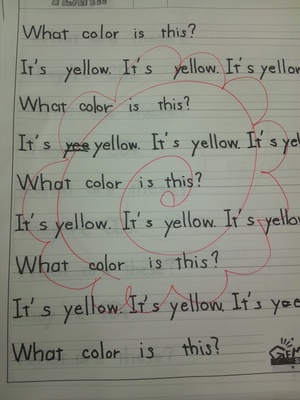 What color is this?
It's yellow. It's yellow. It's yellow
What color is this?
It's yellow. It's yellow. It's ye
What color is this?
It's yellow. It's yellow. It's yello
What color is this?
It's yellow. It's yellow. It's
What color is this?